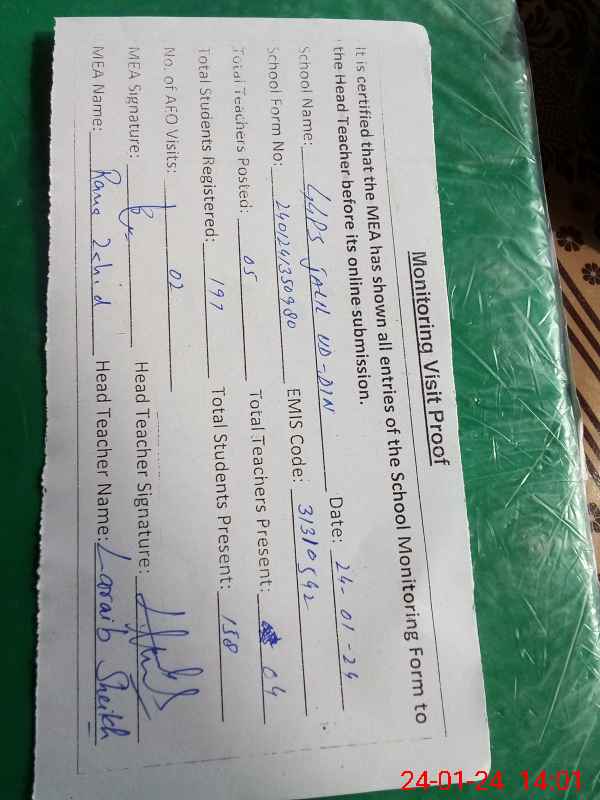 Monitoring Visit Proof
It is certified that the MEA has shown all entries of the School Monitoring Form to
the Head Teacher before its online submission.
School Name: GGPS JALAL UD-DIN Date: 24-01-24
School Form No: 2401241350980 EMIS Code: 31310542
Total Teachers Posted: 05 Total Teachers Present: 04
Total Students Registered: 197 Total Students Present: 158
No. of AEO Visits: 02
MEA Signature: Head Teacher Signature:
MEA Name: Rana Head Teacher Name: Laraib Sheikh
24-01-24 14:01